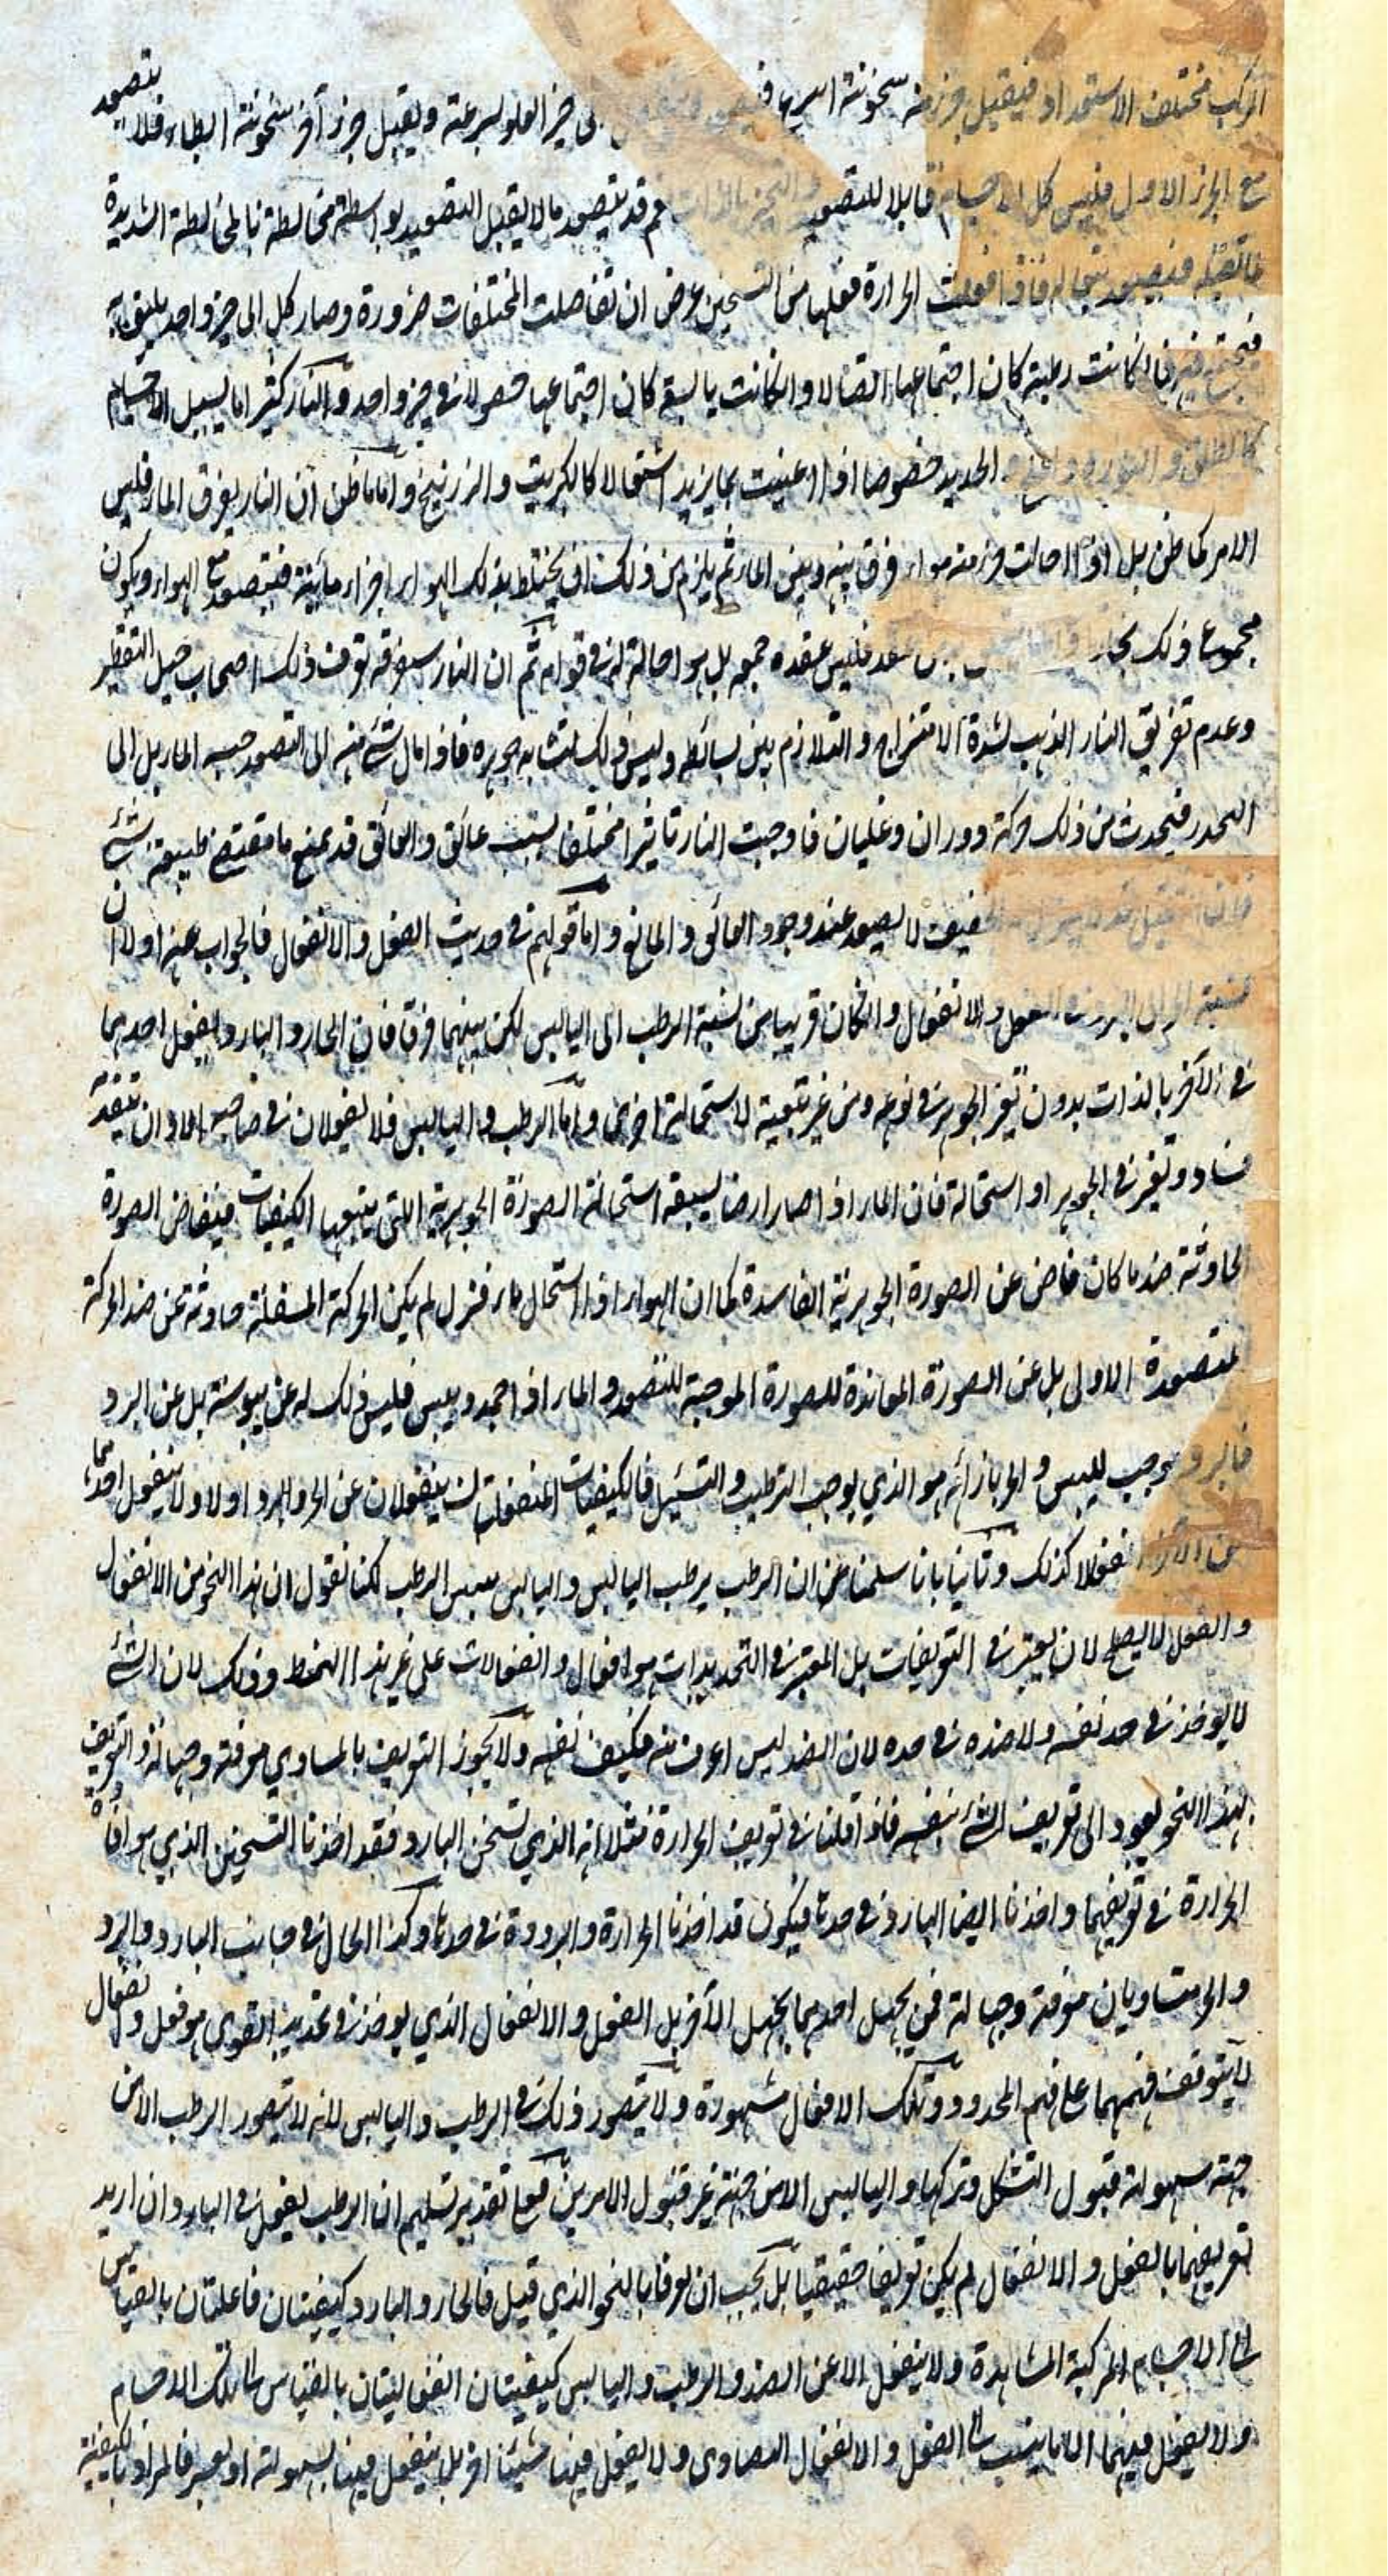 المركب مختلف الاستعداد فيقبل جزء منه سخونته اسرع حيز العلو لسرعته ويقبل جزء آخر سخونته ابطاء فلا يتصعد
مع الجزء الاول فليس كل الاجسام قابلا للتصعيد قد يتصعد ما لا يقبل التصعيد بواسطة مخالطته بالمخالطة الشديدة
لما تصعد فيصعد بتبعاله فاذا فعلت الحرارة فعلها من التسخين عرض ان تفاصلت المختلفات ضرورة وصار كل الى حيز واحد يليق به
فيجتمع فيه فان كانت رطبة كان اجتماعها اتصالا وان كانت يابسة كان اجتماعها حصولا في حيز واحد والنار كثيرا ما يسيل الاجسام
كالطلق والنورة والملح والحديد خصوصا اذا اعينت بما يزيد اشتعالا كالكبريت والزرنيخ واما ما ظن ان النار يفرق الماء فليس
الامر كما ظن بل اذا احالت جزء منه هواء فرق بينه وبين الماء ثم يلزم من ذلك ان يختلط بذلك الهواء اجزاء مائية فيتصعد مع الهواء ويكون
مجموع ذلك بخار فليس عقده جمعه بل هو احالة له في قوامه ثم ان النار سيفرقه توقف ذلك اصحاب حيل التقطير
وعدم تفريق النار الذهب لشدة الامتزاج والتلازم بين بسائطه وليس ذلك لتشابه جوهره فاذا مال شئ منه الى التصعد حبسه المايل الى
التحدر فيحدث من ذلك حركة ودوران وغليان فاوجبت النار تاثيرا مختلفا بسبب عائق والعائق قد يمنع ما مقتضى طبيعة شئ
فان الثقيل قد لا ينزل والخفيف لا يصعد عند وجود العائق والمانع واما قولهم في حديث الفعل والانفعال فالجواب عنه اولا ان
نسبة الحر الى البرد في الفعل والانفعال وان كان قريبا من نسبة الرطب الى اليابس لكن بينهما فرقا فان الحار والبارد يفعل احدهما
في الآخر بالذات بدون تغير الجوهر في نوعه ومن غير تبعية لاستحالة اخرى واما الرطب واليابس فلا يفعلان في صاحبه الا وان يتقدمه
فساد وتغير في الجوهر او استحالة فان الماء اذا صار ارضا يسبقه استحالة الصورة الجوهرية التي يتبعها الكيفيات فيفاض الصورة
الحادثة ضد ما كان فاض عن الصورة الجوهرية الفاسدة كما ان الهواء اذا استحال ماء فنزل لم يكن الحركة المسفلة حادثة عن ضد الحركة
المتصعدة الاولى بل عن الصورة المعاندة للصورة الموجبة للتصعد والماء اذا جمد ويبس فليس ذلك له عن يبوسة بل عن البرد
فالبرد يوجب لليبس والحر بازائه هو الذي يوجب الترطيب والتسييل فالكيفيات المنفعلتان ينفعلان عن الحر والبرد اولا ولا ينفعل احدهما
من الآخر انفعالا كذلك وثانيا بانا سلمنا عن ان الرطب يرطب اليابس واليابس ييبس الرطب لكنا نقول ان هذا النحو من الانفعال
والفعل لا يصلح لان يعتبر في التعريفات بل المعتبر في التحديدات هو افعال وانفعالات على غير هذا النمط وذلك لان الشئ
لا يوخذ في حد نفسه ولا ضده في حده لان الضد ليس اعرف منه فكيف نفسه ولا يجوز التعريف بالمساوي معرفة وجهالة والتعريف
بهذا النحو يعود الى تعريف الشئ بنفسه فاذا قلنا في تعريف الحرارة مثلا انه الذي تسخن البارد فقد اخذنا التسخين الذي هو افادة
الحرارة في تعريفهما واخذنا ايضا البارد في حدها فيكون قد اخذنا الحرارة والبرودة في حدها وكذا الحال في جانب البارد والبرد
والحر متساويان معرفة وجهالة فمن يجهل احدهما يجهل الآخر بل الفعل والانفعال الذي يوخذ في تحديد القوى هو فعل وانفعال
لا يتوقف فهمهما على فهم المحدود وتلك الافعال مشهورة ولا يتصور ذلك في الرطب واليابس لانه لا يتصور الرطب الا من
جهة سهولة قبول التشكل وتركها واليابس الا من جهة عسر قبول الامرين فمع تقدير تسليم ان الرطب يفعل في البارد وان اريد
تعريفهما بالفعل والانفعال لم يكن تعريفا حقيقيا بل يجب ان يعرفا بالنحو الذي قيل فالحار والبارد كيفيتان فاعلتان بالقياس
الى الاجسام المركبة المشاهدة ولا ينفعل الا عن الضد والرطب واليابس كيفيتان انفعاليتان بالقياس الى تلك الاجسام
ولا يفعل فيهما الا ما ينسب الى الفعل والانفعال ولا يفعل فيها شيئا آخر بل ينفعل فيها بسهولة او بعسر فالمراد بالكيفية